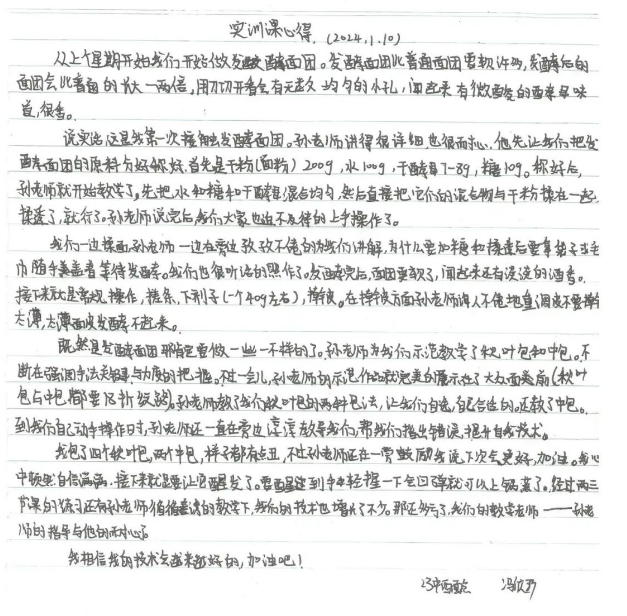 实训课心得 (2024.1.10)
从上个星期开始我们开始做发酵面团。发酵面团比普通面团要软许多,发酵后的
面团会比普通的大一两倍,用刀切开看会有无数均匀的小孔,闻起来有微酸的酒味
道,很香。
说实话,这是我第一次接触发酵面团。孙老师讲得很详细也很耐心,他先让我们把发
酵面团的原料分好称好,首先是干粉(面粉)200g,水100g,干酵母7-8g,糖10g。称好后,
孙老师就开始教学了,先把水和糖和干酵母混合均匀,然后直接把它们的混合物与干粉揉在一起
揉透了,就行了。孙老师说完后,我们大家也迫不及待的上手操作了。
我们一边揉面,孙老师一边在旁边孜孜不倦的为我们讲解,为什么要加糖和揉透后要拿
巾随手盖着等待发酵。我们也很听话的照作了。发酵完后,面团变软了,闻起来还有淡淡的酒香。
接下来就是常规操作,搓条,下剂子(一个40g左右),擀皮。在擀皮方面孙老师诲人不倦地强调皮不要擀
太薄,太薄面皮发酵不起来。
既然是发酵面团那肯定要做一些不一样的了。孙老师为我们示范教学了秋叶包和中包。不
断在强调手法关键与力度的把握。不过一会儿,孙老师的示范作品就完美的展示在了大众面前(秋叶
包与中包都要几折纹路)。孙老师教了我们秋叶包的两种包法,让我们自选自己合适的。还教了中包。
到我们自己动手操作时,孙老师还一直在旁边谆谆教导我们,帮我们指出错误,提升自我技术。
我包了四个秋叶包,两个中包,样子都有点丑,不过孙老师还在一旁鼓励我说下次会更好,加油。我心
中顿时自信满满。接下来就是要让它醒发了。要醒发到手轻摸一下会回弹就可以上锅蒸了。经过两三
节课的练习还有孙老师循循善诱的教学下,我们的技术也增长了不少。那还多亏了,我们的教学老师——孙老
师的指导与他的耐心。
我相信我的技术会越来越好的,加油吧!
23中西面点 冯